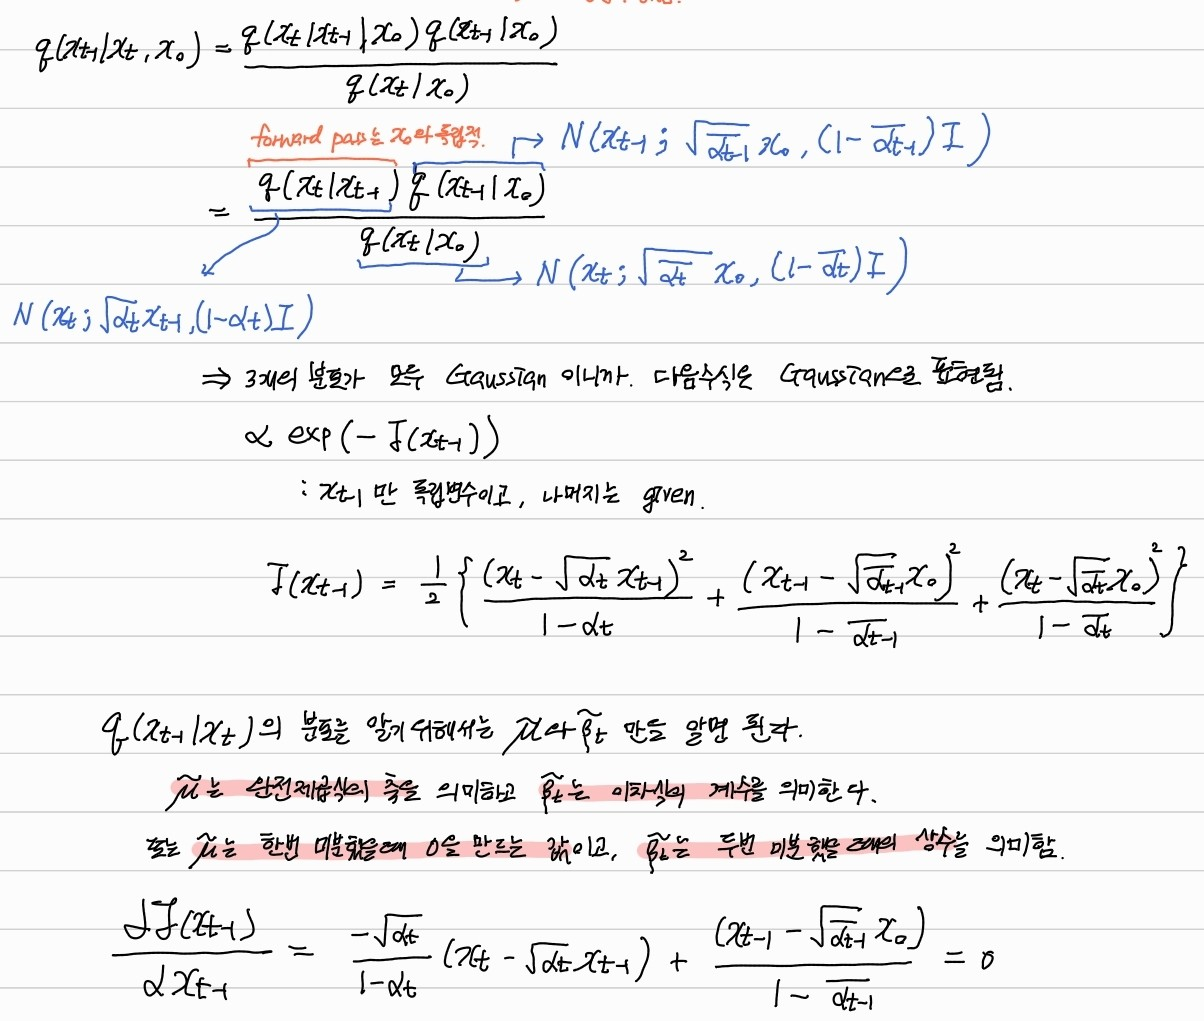 q(x_{t-1}|x_t, x_0) = \frac{q(x_t|x_{t-1}, x_0) q(x_{t-1}|x_0)}{q(x_t|x_0)}
forward pass는 x_0와 독립적. → N(x_{t-1}; \sqrt{\overline{α_{t-1}}} x_0, (1-\overline{α_{t-1}})I)
= \frac{q(x_t|x_{t-1}) q(x_{t-1}|x_0)}{q(x_t|x_0)}
→ N(x_t; \sqrt{\overline{α_t}} x_0, (1-\overline{α_t})I)
N(x_t; \sqrt{α_t} x_{t-1}, (1-α_t)I)
⇒ 3개의 분포가 모두 Gaussian 이니까. 다음수식은 Gaussian으로 표현됨.
∝ exp(-J(x_{t-1}))
: x_{t-1} 만 독립변수이고, 나머지는 given.
J(x_{t-1}) = \frac{1}{2} \{ \frac{(x_t - \sqrt{α_t} x_{t-1})^2}{1-α_t} + \frac{(x_{t-1} - \sqrt{\overline{α_{t-1}}} x_0)^2}{1-\overline{α_{t-1}}} + \frac{(x_t - \sqrt{\overline{α_t}} x_0)^2}{1-\overline{α_t}} \}
q(x_{t-1}|x_t)의 분포를 알기 위해서는 \tilde{μ}와 \tilde{β_t} 만을 알면 된다.
\tilde{μ}는 완전제곱식의 축을 의미하고 \tilde{β_t}는 이차식의 계수를 의미한다.
또는 \tilde{μ}는 한번 미분했을때 0을 만드는 값이고, \tilde{β_t}는 두번 미분했을 때의 상수를 의미함.
\frac{dJ(x_{t-1})}{dx_{t-1}} = \frac{-\sqrt{α_t}}{1-α_t} (x_t - \sqrt{α_t} x_{t-1}) + \frac{(x_{t-1} - \sqrt{\overline{α_{t-1}}} x_0)}{1-\overline{α_{t-1}}} = 0